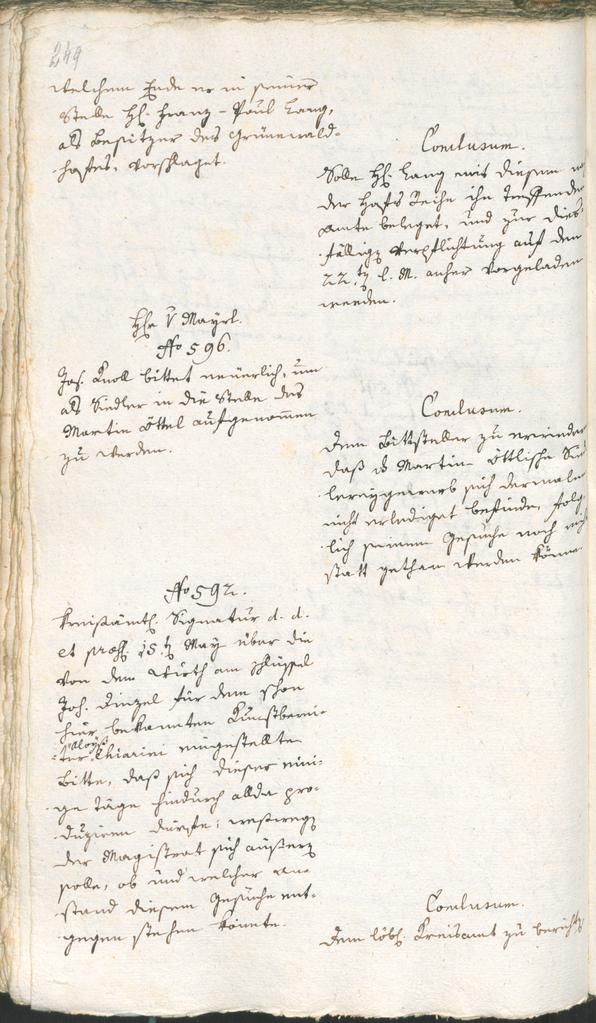 249
welchem Ende er in seiner
Stelle H: Franz-Paul Lang,
als Besitzer des Grünewald-
hofes, vorschlaget.
Conclusum.
Solle H: Lang mit diesem
der Hofs Reihe ihn treffenden
Amte beleget, und zur dies-
fälligen Verpflichtung auf den
22.t l. M. anher vorgeladen
werden.
H: v Mayrl.
No 596.
Jos. Knoll bittet neuerlich, um
als Siedler in die Stelle des
Martin Öttel aufgenommen
zu werden.
Conclusum.
Dem Bittsteller zu erinnern
daß das Martin Öttlische Sied
lereygewerb sich dermalen
nicht erlediget befinde, folg
lich seinem Gesuche noch nicht
statt gethan werden könne.
No 592.
Kreisämtl. Signatur d. d.
et præs. 15.t May über die
von dem Wirth am Schlüssel
Joh. Dinzel für dem schon
hier bekannten Kunstberei-
Aloys
ter Chiarini eingestellte
Bitte, daß sich dieser eini-
ge Täge hindurch allda pro-
duziren dürfte; westwegen
der Magistrat sich äußern
solle, ob und welcher An-
stand diesem Gesuche ent-
gegen stehen könnte.
Conclusum.
Dem löbl. Kreisamt zu berichten